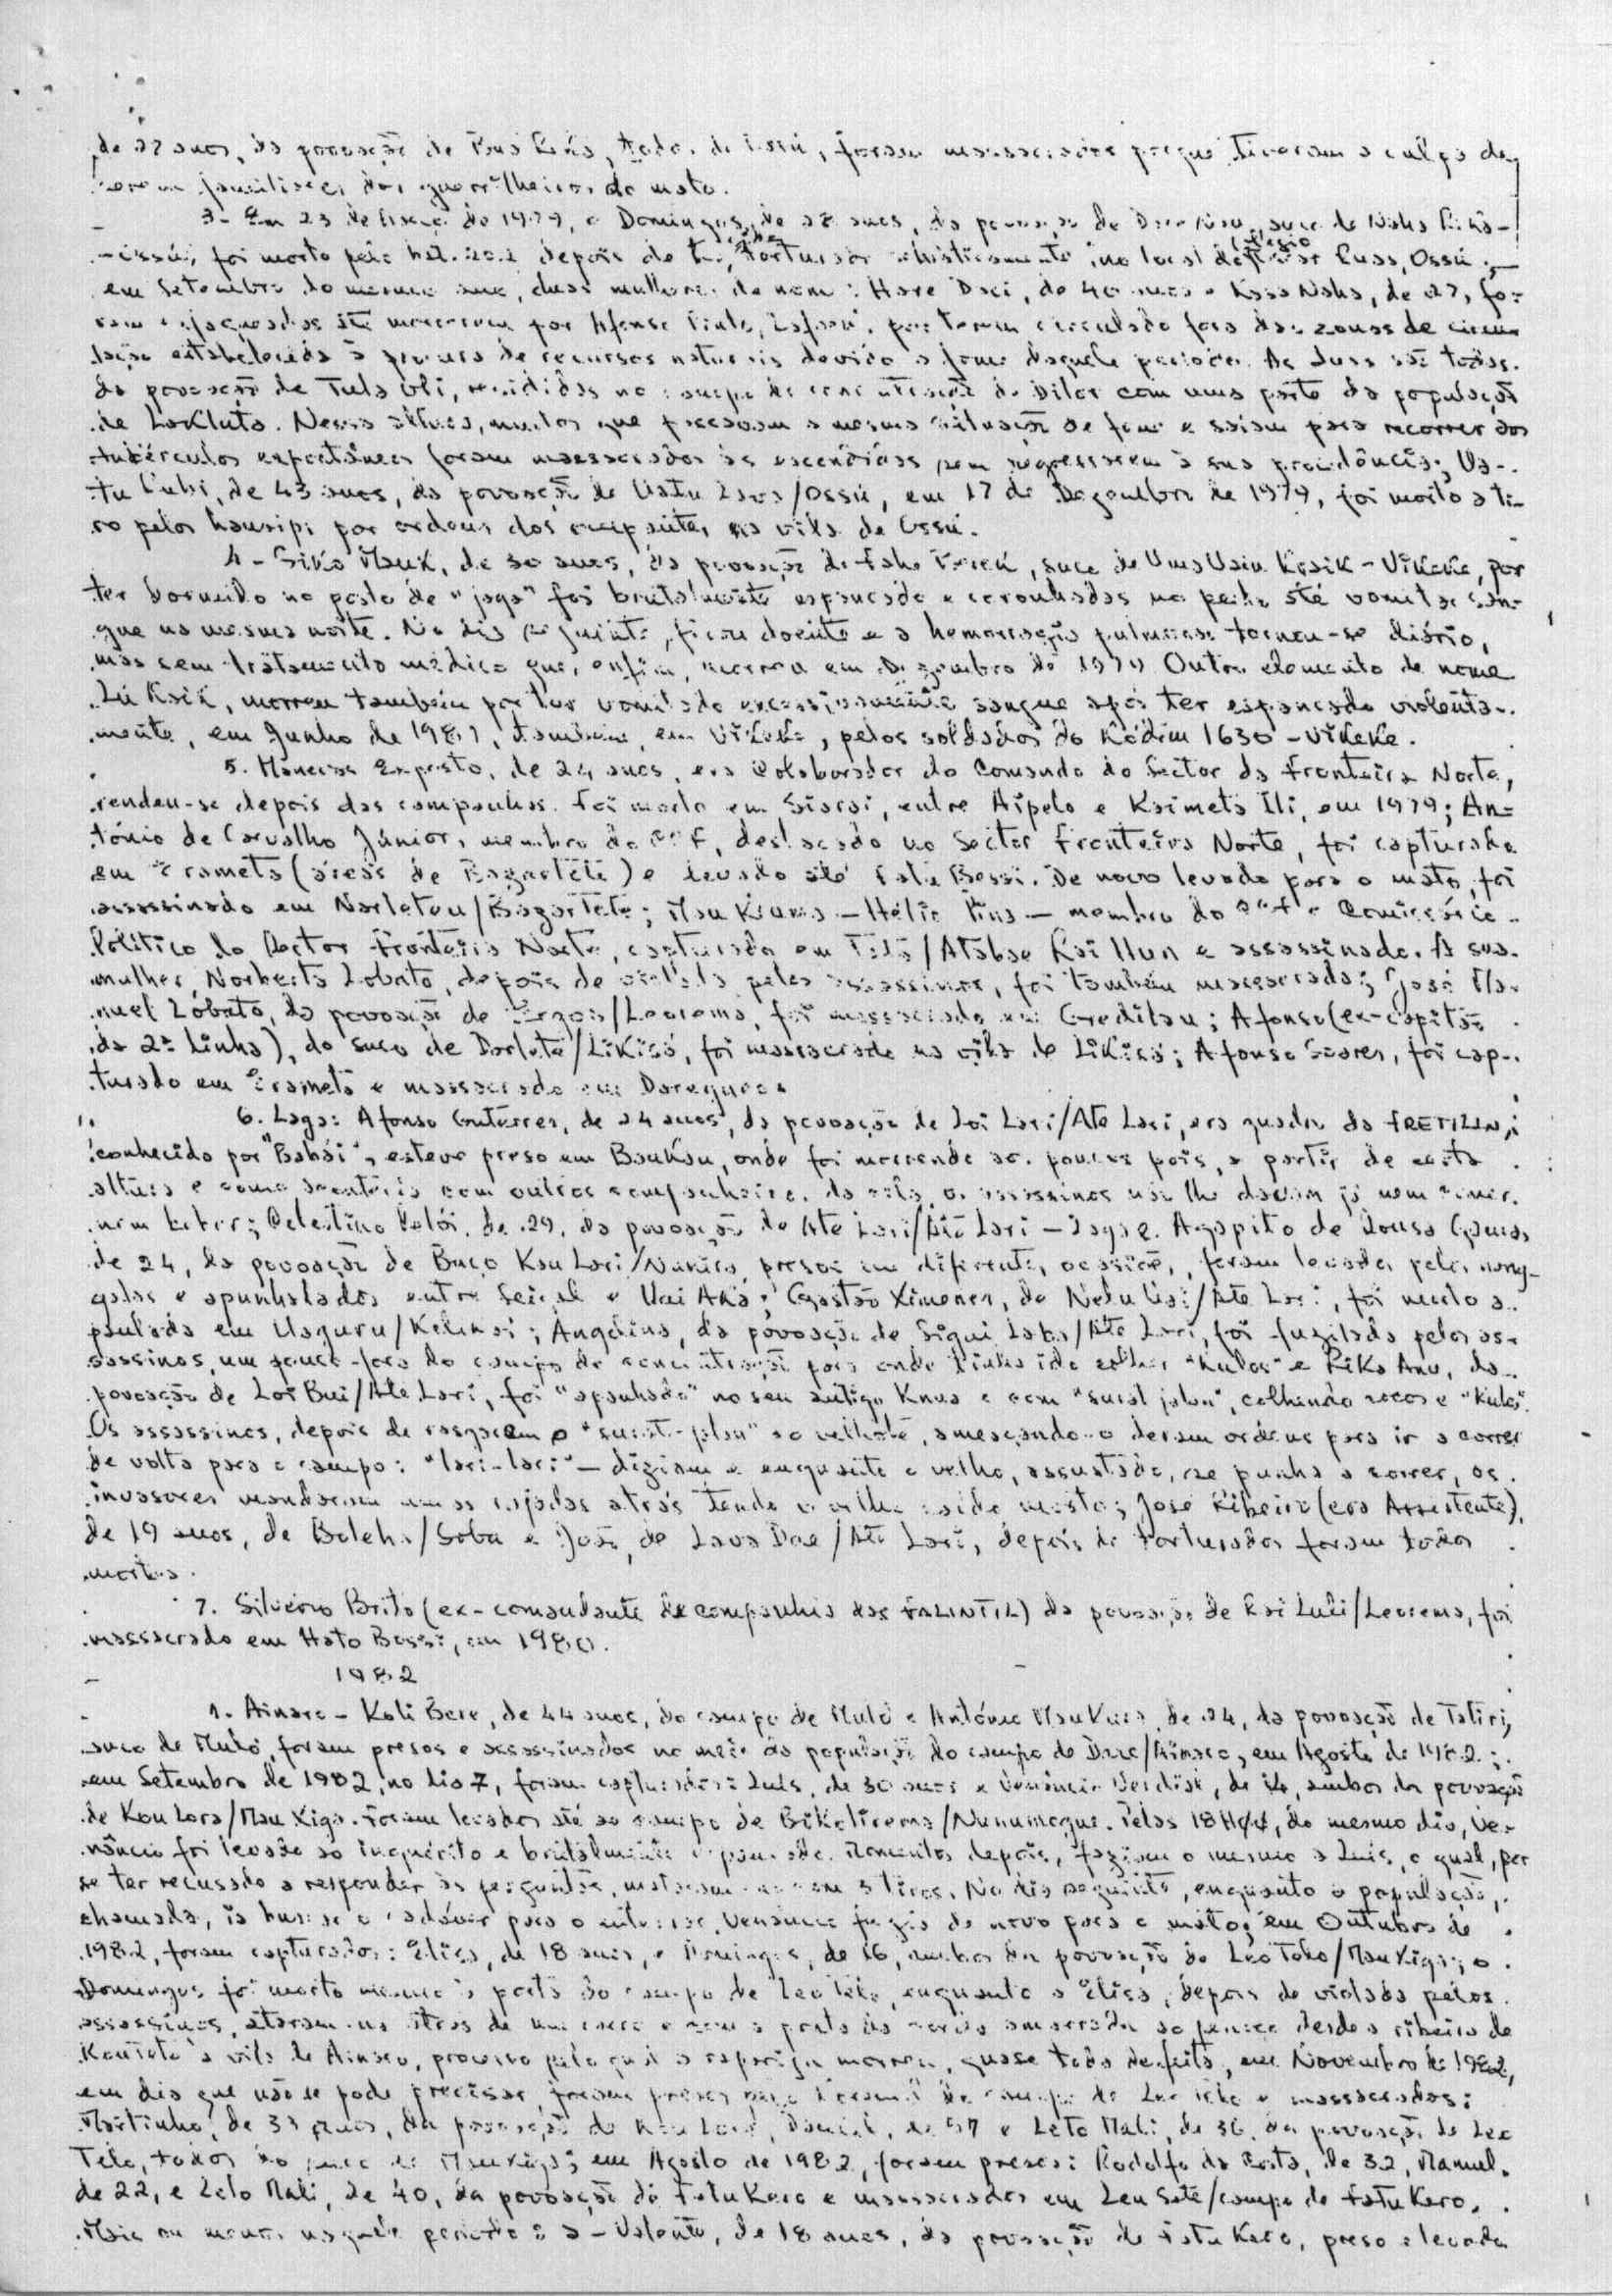 de 27 anos, da povoação de Bua , todos de Ossú, foram massacrados porque tiveram a culpa de
serem familiares dos guerrilheiros do mato.
3- Em 23 de de 1979, o Domingos, de anos, da povoação de , suco de Naha
Ossú, foi morto pelo bat. 202 depois de torturado no local de Luas, Ossú;
em Setembro do mesmo ano, duas mulheres de nome: Hare Daci, de 40 anos e Kasa Naha, de 27, fo-
ram esfaqueadas até morrerem por Afonso Pinto, , por terem circulado fora das zonas de circu-
lação estabelecida à procura de recursos naturais devido a fome daquele período. As duas são todas
da povoação de Tula Uli, residides no campo de concentração de Dilor com uma parte da população
de Lakluta. Nessa altura, muitos que passavam a mesma situação de fome e saiam para recorrer aos
tubérculos espontâneos foram massacrados às escondidas sem regressarem à sua procedência; Ua-
tu Lubi, de 43 anos, da povoação de Uatu Lava/Ossú, em 17 de Dezembro de 1979, foi morto a ti-
ro pelos hansip, por ordens dos ocupantes, na vila de Ossú.
4 - Siko Mauk, de 30 anos, da povoação de , suco de Uma Uain Kraik - Vikeke, por
ter dormido no posto de "jaga" foi brutalmente espancado e coronhadas no peito até vomitar san-
gue na mesma noite. No dia seguinte, ficou doente e a hemorragia pulmonar tornou-se diário,
mas sem tratamento médico que, enfim, morreu em Dezembro de 1979. Outro elemento de nome
Lu Kaik, morreu também por ter vomitado excessivamente sangue após ter espancado violenta-
mente, em Junho de 1981, também, em Vikeke, pelos soldados do Kodim 1630 - Vikeke.
5. Maneças Exposto, de 24 anos, era Colaborador do Comando do Sector da Fronteira Norte,
rendeu-se depois das campanhas. Foi morto em Siarai, entre Aipelo e Kaimeta Ili, em 1979; An-
tónio de Carvalho Júnior, membro do CCF, destacado no Sector Fronteira Norte, foi capturado
em Erameta (áreas de Bazartete) e levado até Fatu Bessi. De novo levado para o mato, foi
assassinado em Narleteu/Bazartete; Mau Kruma - Hélio Pina - membro do CCF e Comissário
Político do Sector Fronteira Norte, capturado em /Atabae Kai Hun e assassinado. A sua
mulher, Norberta Lobato, depois de violada pelos assassinos, foi também massacrada; José Ma-
nuel Lobato, da povoação de /Leorema, foi massacrado em Creditau; Afonso (ex-capitão
da 2ª Linha), do suco de Darlete/Likisá, foi massacrado na vila de Likisá; Afonso Soares, foi cap-
turado em Erameta e massacrado em
6. Laga: Afonso Guterres, de 24 anos, da povoação de Loi Lari/Ate Lari, era quadro da FRETILIN,
conhecido por "Bahái", esteve preso em Baukau, onde foi morrendo aos poucos pois, a partir de certa
altura e como acontecia com outros companheiros da cela, os assassinos não lhe davam já nem comer
nem beber; Celestino , de 29, da povoação de Ate Lari/Ate Lari - Laga e Agapito de Sousa Gama,
de 24, da povoação de Buco Kau Lari/Nunira, presos em diferentes ocasiões, foram levados pelos nang-
galas e apunhalados entre Seiçal e Uai Aka; Gastão Ximenes, de Nelu Uai/Ate Lari, foi morto a
paulada em Uaguru/Kelikai; Angelina, da povoação de Sigui Laba/Ate Lari, foi fuzilada pelos as-
sassinos, um pouco fora do campo de concentração para onde tinha ido colher "kulos" e Riko Anu, da
povoação de Loi Bui/Ate Lari, foi "apanhado" no seu antigo Knua e com "surat jalan", colhendo cocos e "kulos".
Os assassinos, depois de rasgarem o "surat-jalan" ao velhote, ameaçando-o deram ordens para ir a correr
de volta para o campo: "lari-lari" - diziam e enquanto o velho, assustado, se punha a correr, os
invasores mandaram umas rajadas atrás tendo o velho caído morto; José Ribeiro (era Assistente),
de 19 anos, de Boleha/Soba e João, de Lava Dae/Ate Lari, depois de torturados foram todos
mortos.
7. Silvério Brito (ex-comandante de companhia das FALINTIL) da povoação de Kai Luli/Leorema, foi
massacrado em Hato Bessi, em 1980.
1982
1. Ainaro - Koli Bere, de 44 anos, do campo de Mulo e António Mau Kura, de 24, da povoação de Tatiri,
suco de Mulo, foram presos e assassinados no meio da população do campo de Dare/Ainaro, em Agosto de 1982;
em Setembro de 1982, no dia 7, foram capturados: Luís, de 30 anos e Venâncio Verdial, de 14, ambos da povoação
de Kou Lora/Mau Xiga. Foram levados até ao campo de Bikelirema/Nunumogue. Pelas 18H00, do mesmo dia, Ve-
nâncio foi levado ao inquérito e brutalmente espancado. Momentos depois, faziam o mesmo a Luís, o qual, por
se ter recusado a responder às perguntas, mataram-no com 3 tiros. No dia seguinte, enquanto a população,
chamada, ia buscar o cadáver para o enterrar, Venâncio fugia de novo para o mato; em Outubro de
1982, foram capturados: Elisa, de 18 anos, e Domingos, de 16, ambos da povoação de Leo Telo/Mau Xiga; o
Domingos foi morto mesmo à porta do campo de Leo Telo, enquanto a Elisa, depois de violada pelos
assassinos, ataram-na atrás de um carro e com a ponta da corda amarrada ao pescoço desde a ribeira de
à vila de Ainaro, processo pelo qual a rapariga morreu, quase toda desfeita, em Novembro de 1982,
em dia que não se pode precisar, foram presos do campo de Leo Telo e massacrados:
Martinho, de 33 anos, da povoação de Kou Lora, Daniel, de 57 e Leto Mali, de 36, da povoação de Leo
Telo, todos do suco de Mau Xiga; em Agosto de 1982, foram presos: Rodolfo da Costa, de 32, Manuel,
de 22, e Lelo Mali, de 40, da povoação de Fatu Kero e massacrados em Leu Sate/campo de Fatu Kero.
Mais ou menos naquele período: a - Valente, de 18 anos, da povoação de Fatu Kero, preso e levado